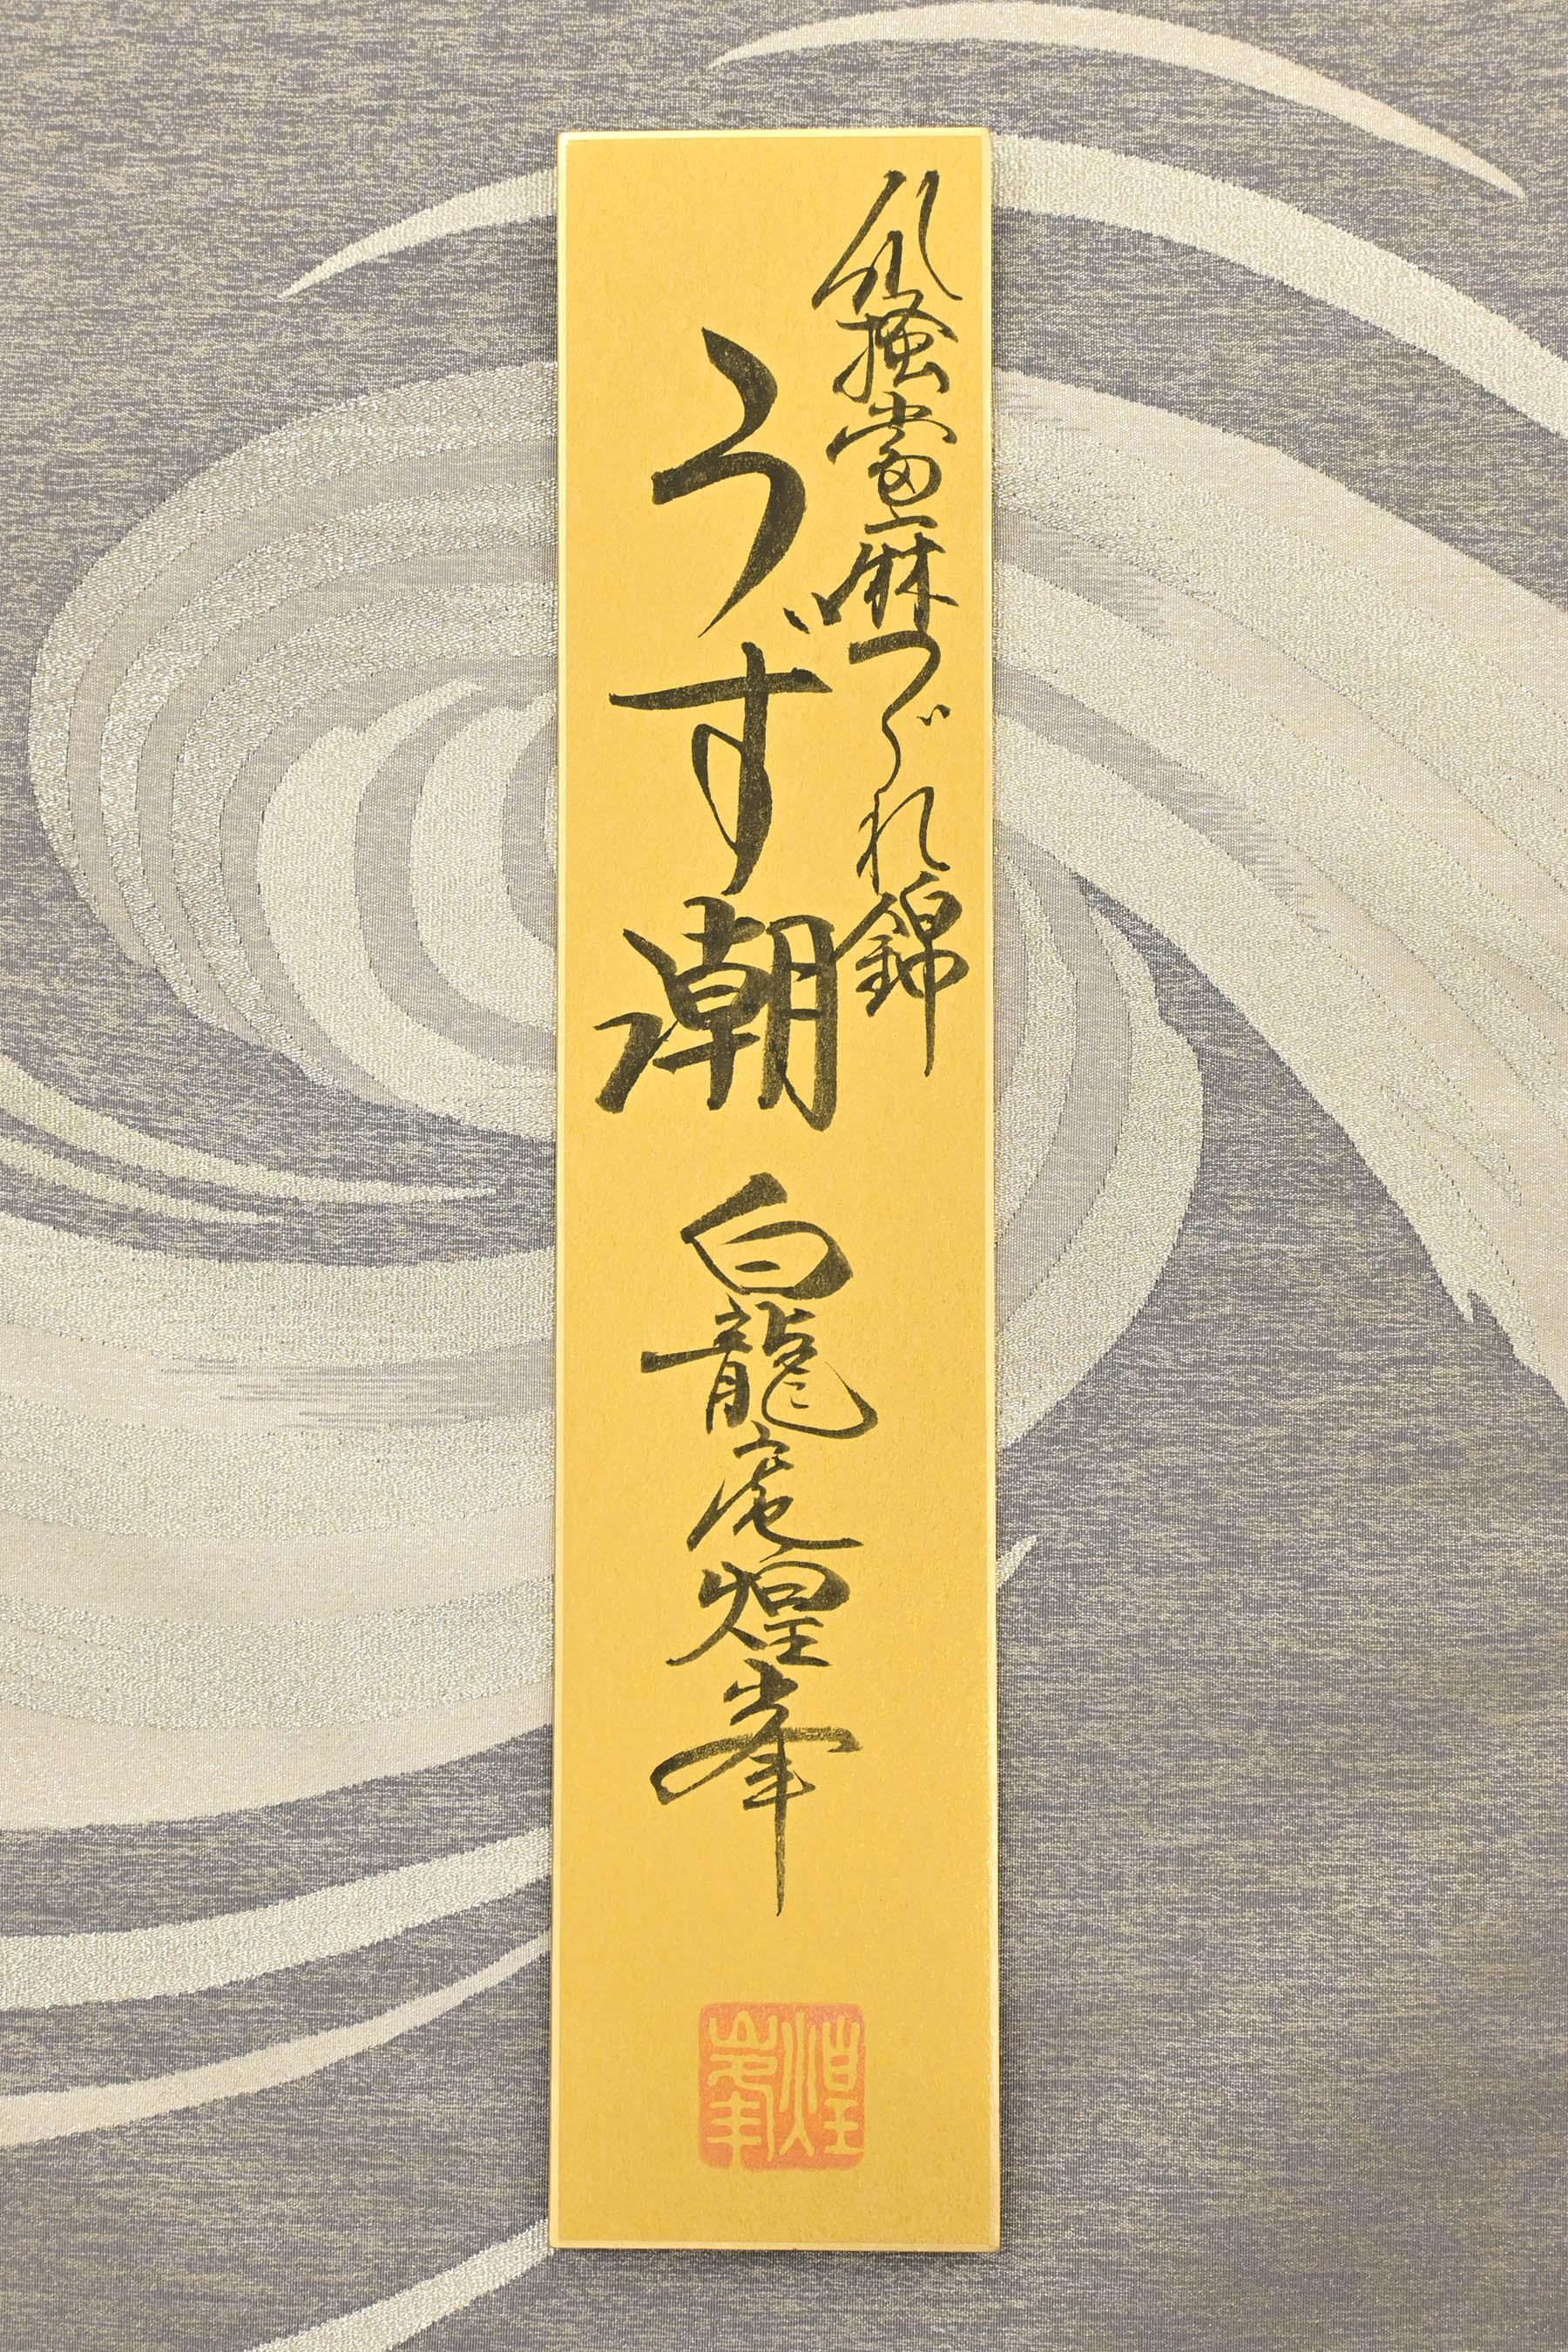 爪掻當麻つづれ錦
うず潮
白龍庵煌峯
煌峯